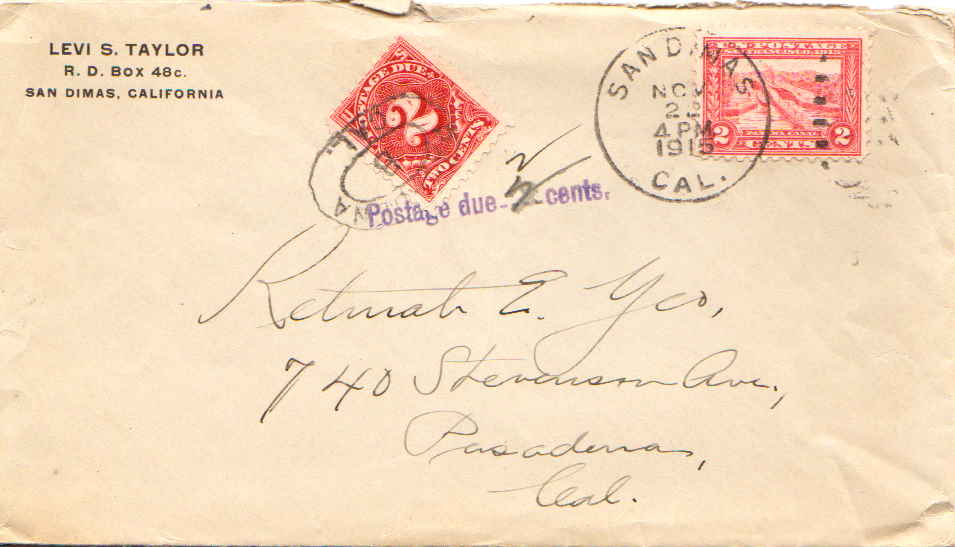 LEVI S. TAYLOR
R. D. BOX 48c.
SAN DIMAS, CALIFORNIA
POSTAGE DUE
2
TWO CENTS
SAN DIMAS
NOV
2
4 PM
1915
CAL.
U.S. POSTAGE
SAN FRANCISCO 1915
PANAMA CANAL
2 CENTS 2
Postage due 2 cents.
E. Yeo,
740 Stevenson Ave.,
Pasadena,
Cal.